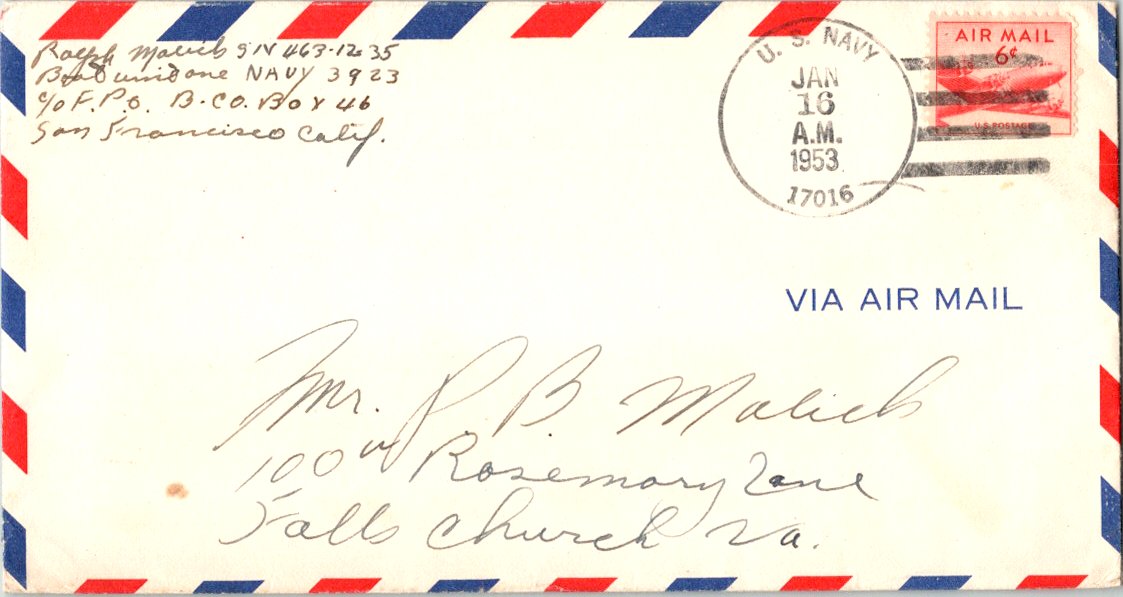 Ralph Malich S/N 463-12-35
Boat unit one NAVY 3923
c/o F.P.O. B. CO. Box 46
San Francisco Calif.
U. S. NAVY
JAN
16
A.M.
1953
17016
AIR MAIL
6¢
U.S. POSTAGE
VIA AIR MAIL
Mr. P B. Malich
100 W Rosemary Lane
Falls Church Va.